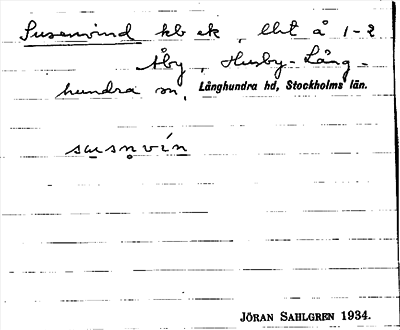 Susenvind kb ek, Ebt å 1-2
Åby, Husby-Lång-
hundra sn, Långhundra hd, Stockholms län.
susn̥vín
JÖRAN SAHLGREN 1934.